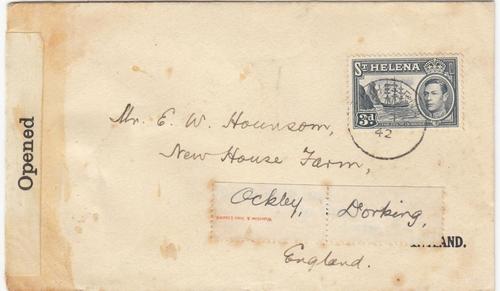 Opened
ST HELENA
3d
42
Mr. E. W. Hounsom,
New House Farm,
Ockley, Dorking,
England.